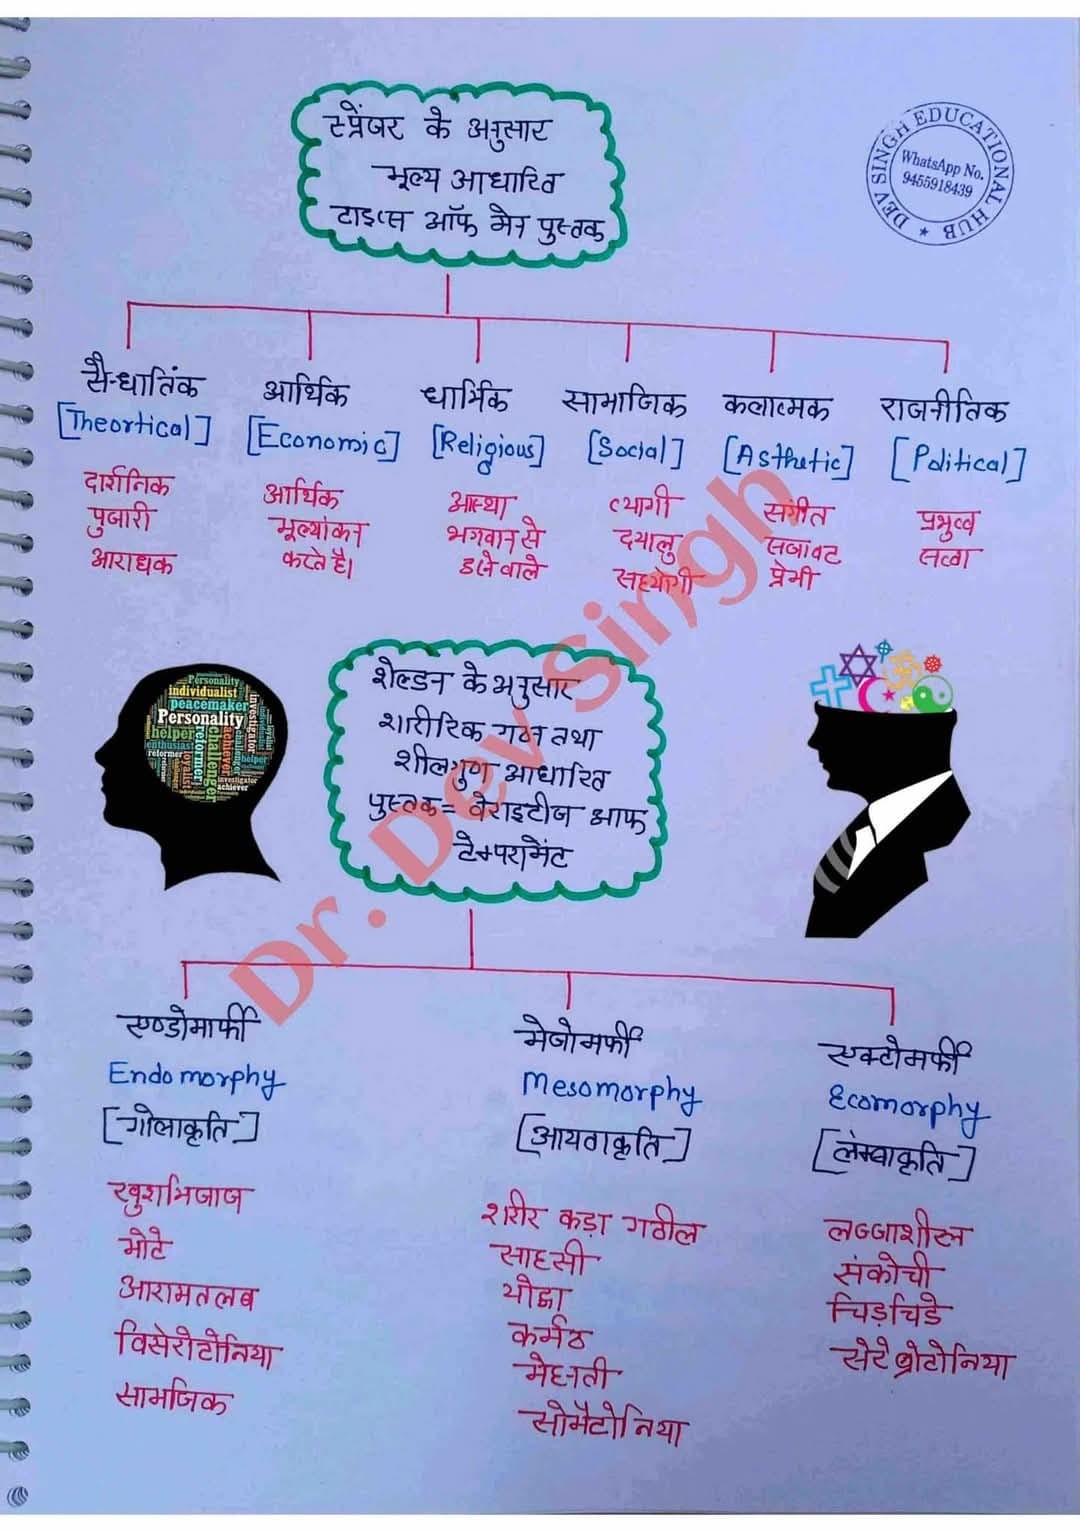 स्प्रेंजर के अनुसार
मूल्य आधारित
टाइप्स ऑफ मेन पुस्तक
DEV SINGH EDUCATIONAL HUB
WhatsApp No.
9455918439
सैन्धातिंक आर्थिक धार्मिक सामाजिक कलात्मक राजनीतिक
[Theortical] [Economic] [Religious] [Social] [Asthetic] [Political]
दार्शनिक आर्थिक आस्था त्यागी संगीत प्रभुत्व
पुजारी मूल्यांकन भगवान से दयालु सजावट सत्ता
आराधक करते है। डरने वाले सहयोगी प्रेमी
शेल्डन के अनुसार
शारीरिक गठन तथा
शीलगुण आधारित
पुस्तक = वेराइटीज आफ
टेम्परामेंट
Personality
individualist
peacemaker
Personality
helper
enthusiast
reformer
loyalist
reformer
challenger
achiever
investigator
helper
investigator
achiever
Dr. Dev Singh
एण्डोमार्फी मेजोमर्फी एक्टोमर्फी
Endomorphy Mesomorphy Ecomorphy
[गोलाकृति] [आयताकृति] [लम्बाकृति]
खुशमिजाज शरीर कड़ा गठील लज्जाशील
मोटे साहसी संकोची
आरामतलब योद्धा चिड़चिडे
विसेरोटोनिया कर्मठ सेरेब्रोटोनिया
सामजिक मेहनती
सोमैटोनिया